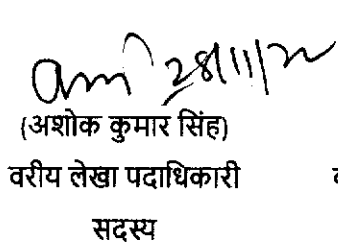 28/11/22
(अशोक कुमार सिंह)
वरीय लेखा पदाधिकारी
सदस्य